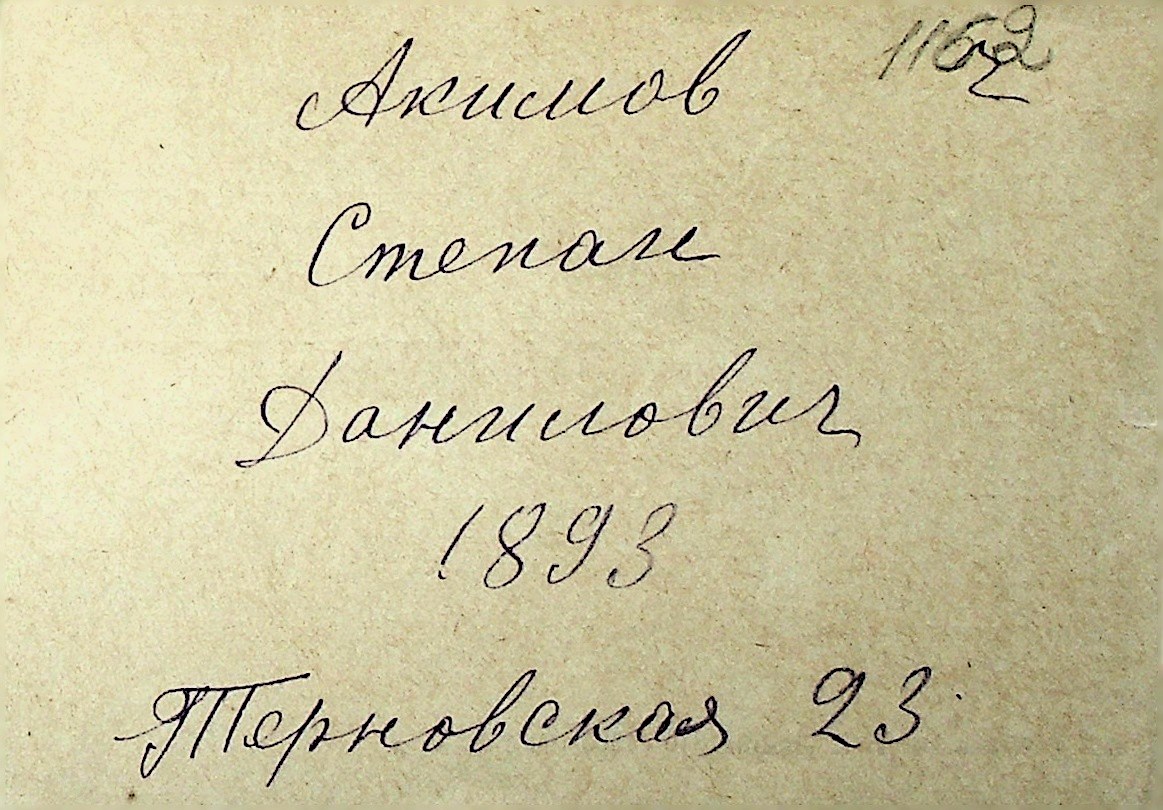 1152
Акимов
Степан
Данилович
1893
Терновская 23